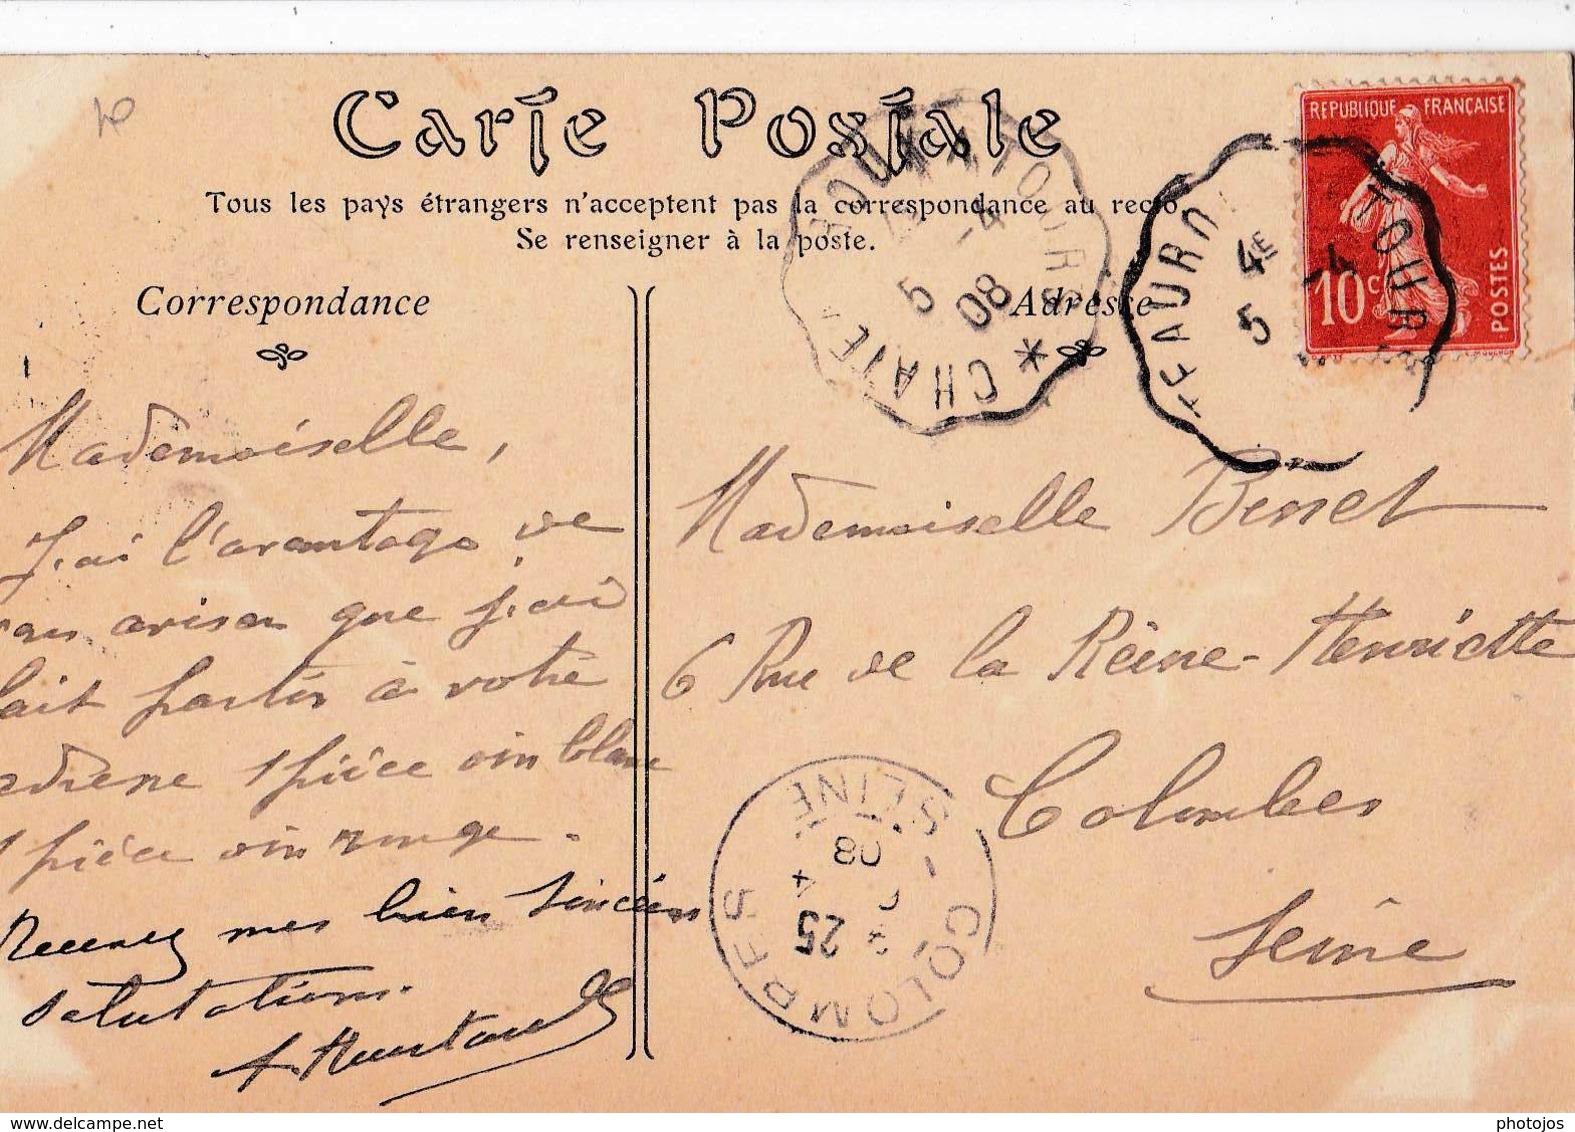 Carte Postale
Tous les pays étrangers n'acceptent pas la correspondance au recto
Se renseigner à la poste.
Correspondance
Adresse
REPUBLIQUE FRANÇAISE
10 c
POSTES
CHATE
TOURS
5 -4
08
4E
5 -4
TOUR
Mademoiselle,
J'ai l'avantage de
aviser que j'ai
fait partir à votre
adresse 1 pièce vin blanc
1 pièce vin rouge.
Recevez mes bien sincères
salutations.
Mademoiselle Benet
6 Rue de la Reine-Henriette
Colombes
Seine
COLOMBES - SEINE
25
4
08
delcampe.net
photojos